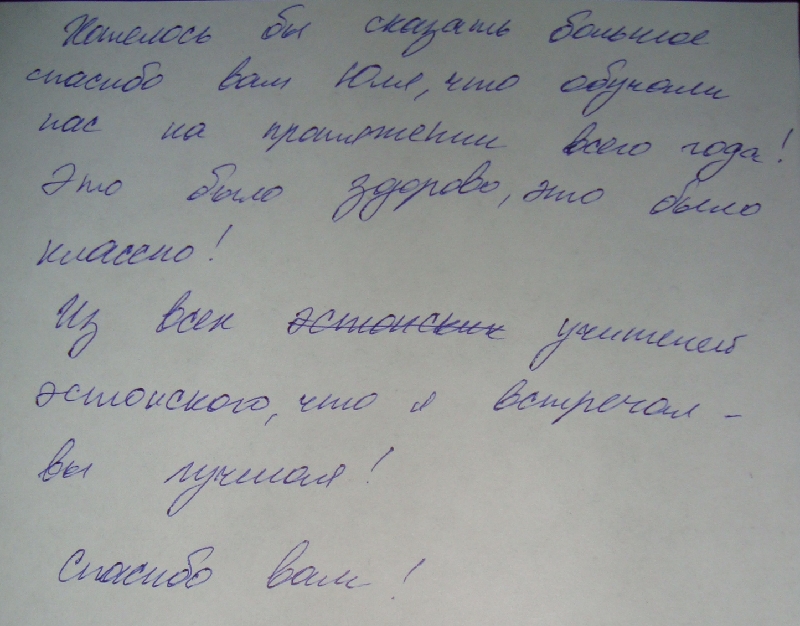 Хотелось бы сказать большое
спасибо вам Юля, что обучали
нас на протяжении всего года!
Это было здорово, это было
классно!
Из всех эстонских учителей
эстонского, что я встречал -
вы лучшая!
Спасибо вам!